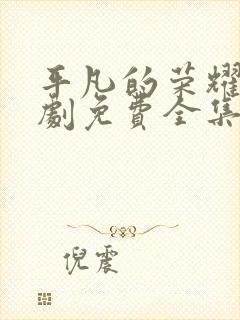 平凡的荣耀
劇免費全集
倪震